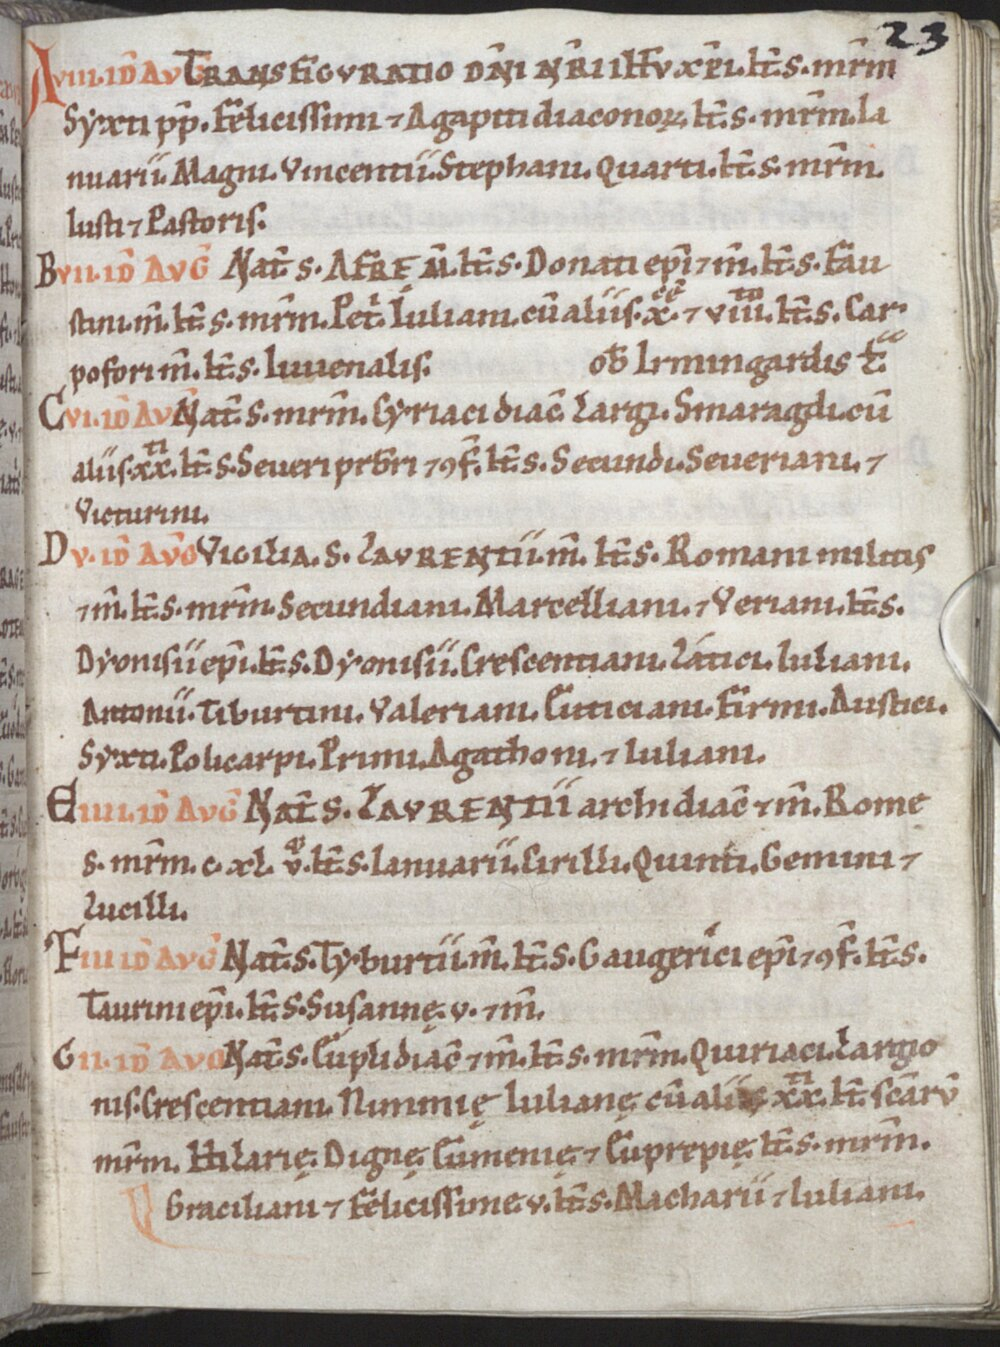 23
A VIII. ID̄ AVḠ TRANSFIGVRATIO DN̄I NR̄I IH̄V XP̄I. It̄. s. mr̄m
Syxti pp̄. Felicissimi ⁊ Agapiti diaconoꝝ. It̄. s. mr̄m. Ia
nuarii. Magni. Vincentii. Stephani. Quarti. It̄. s. mr̄m.
Iusti ⁊ Pastoris.
B VII. ID̄ AVḠ Nat̄. s. AFRE M̄. It̄. s. Donati ep̄i ⁊ m̄. It̄. s. Fau
stini. m̄. It̄. s. mr̄m. Pet̄. Iuliani. cū aliis. x. ⁊ viii. It̄. s. Car
pofori m̄. It̄. s. Iuuenalis. ob̄ Irmingardis
C VI. ID̄ AVḠ Nat̄. s. mr̄m. Cyriaci diac̄. Largi. Smaragdi. cū
aliis. xx.ti It̄. s. Seueri prb̄ri ⁊ ꝯf̄. It̄. s. Secundi. Seueriani. ⁊
Victurini.
D V. ID̄ AVḠ VIGILIA. S. LAVRENTII. m̄. It̄. s. Romani militis
⁊ m̄. It̄. s. mr̄m. Secundiani. Marcelliani. ⁊ Veriani. It̄. s.
Dyonisii ep̄i. It̄. s. Dyonisii. Crescentiani. Latici. Iuliani.
Antonii. Tiburtini. Valeriani. Euticiani. Firmi. Austici.
Syxti. Policarpi. Primi. Agathoni. ⁊ Iuliani.
E IIII. ID̄ AVḠ Nat̄. s. LAVRENTII archidiac̄ ⁊ m̄. Rome
s. mr̄m. c. xl. v. It̄. s. Ianuarii. Cirilli. Quinti. Gemini ⁊
Lucilli.
F III ID̄ AVḠ Nat̄. s. Tyburtii. m̄. It̄. s. Gaugerici ep̄i ⁊ ꝯf̄. It̄. s.
Taurini ep̄i. It̄. s. Susannę. v. ⁊ m̄.
G II. ID̄ AVḠ Nat̄. s. Eupli diac̄ ⁊ m̄. It̄. s. mr̄m. Quiriaci. Largio
nis. Crescentiani. Nimmię Iulianę cū aliis xx.ti It̄. scār̄ū
mr̄m. Hilarię. Dignę. Eumenię. ⁊ Euprepię. It̄. s. mr̄m.
Graciliani ⁊ Felicissime. v. It̄. s. Macharii ⁊ Iuliani.